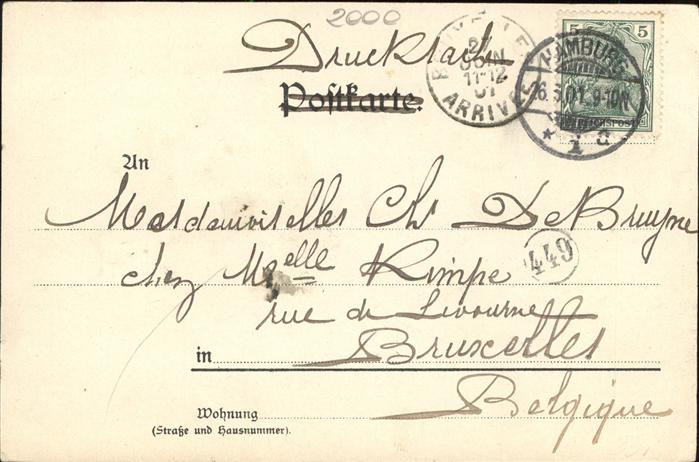 2000
Drucksache
Postkarte.
BRUXELLES
27
JUIN
11-12
01
ARRIVEE
5 5
REICHSPOST
HAMBURG
26.6.01.9-10N
* 1 d
An
Mesdemoiselles Chs De Bruyne
chez Melle Kimpe
449
rue de Livourne
in Bruxelles
Belgique
Wohnung
(Straße und Hausnummer).